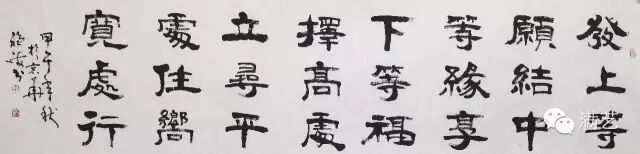 發上等
願結中
等緣享
下等福
擇高處
立尋平
處住嚮
寬處行
甲午年秋
於京